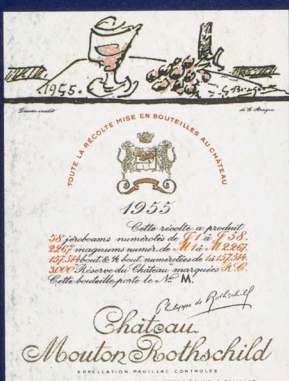 1955.
G. Braque
Dessin inédit
de G. Braque
TOUTE LA RÉCOLTE MISE EN BOUTEILLES AU CHÂTEAU
1955
Cette récolte a produit
58 jéroboams numérotés de J 1 à J 58.
2.267 magnums numér. de M 1 à M 2.267.
157.514 bout. & ½ bout. numérotées de 1 à 157.514.
3.000 Réserve du Château marquées R.C.
Cette bouteille porte le No M.
Philippe de Rothschild
Château
Mouton Rothschild
APPELLATION PAUILLAC CONTROLÉE